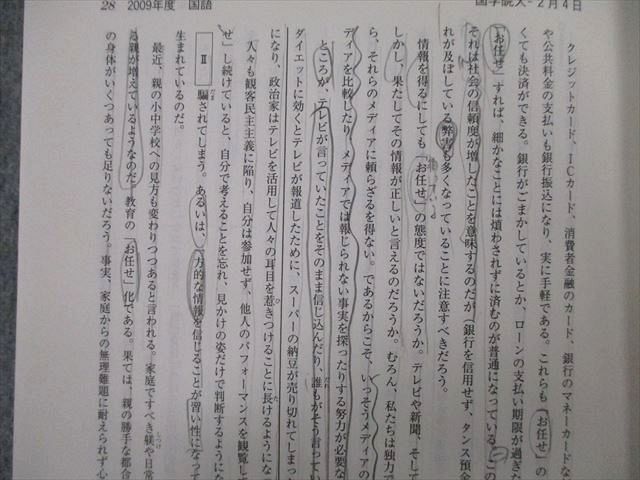 28 2009年度 国語
国学院大-2月4日
クレジットカード、ICカード、消費者金融のカード、銀行のマネーカードな
や公共料金の支払いも銀行振込になり、実に手軽である。これらも「お任せ」の
くても決済ができる。銀行がごまかしているとか、ローンの支払い期限が過ぎた
「お任せ」すれば、細かなことには煩わされずに済むのが普通になっている。この
それは社会の信頼度が増したことを意味するのだが(銀行を信用せず、タンス預金
れが及ぼしている弊害も多くなっていることに注意すべきだろう。
情報を得るにしても「お任せ」の態度ではないだろうか。テレビや新聞、そして
しかし、果たしてその情報が正しいと言えるのだろうか。むろん、私たちは独力で
ら、それらのメディアに頼らざるを得ない。であるからこそ、いっそうメディアの
ディアを比較したり、メディアでは報じられない事実を探ったりする努力が必要な
ところが、テレビが言っていたことをそのまま信じ込んだり、誰もがそう言ってい
ダイエットに効くとテレビが報道したために、スーパーの納豆が売り切れてしまっ
になり、政治家はテレビを活用して人々の耳目を惹きつけることに長けるようにな
人々も観客民主主義に陥り、自分は参加せず、他人のパフォーマンスを観覧して
せ」し続けていると、自分で考えることを忘れ、見かけの姿だけで判断するようにな
Ⅱ 騙されてしまう。あるいは、一方的な情報を信じることが習い性になって
生まれているのだ。
最近、親の小中学校への見方も変わりつつあると言われる。家庭ですべき躾や日常
る親が増えているようなのだ。教育の「お任せ」化である。果ては、親の勝手な都合
の身体がいくつあっても足りないだろう。事実、家庭からの無理難題に耐えられず心